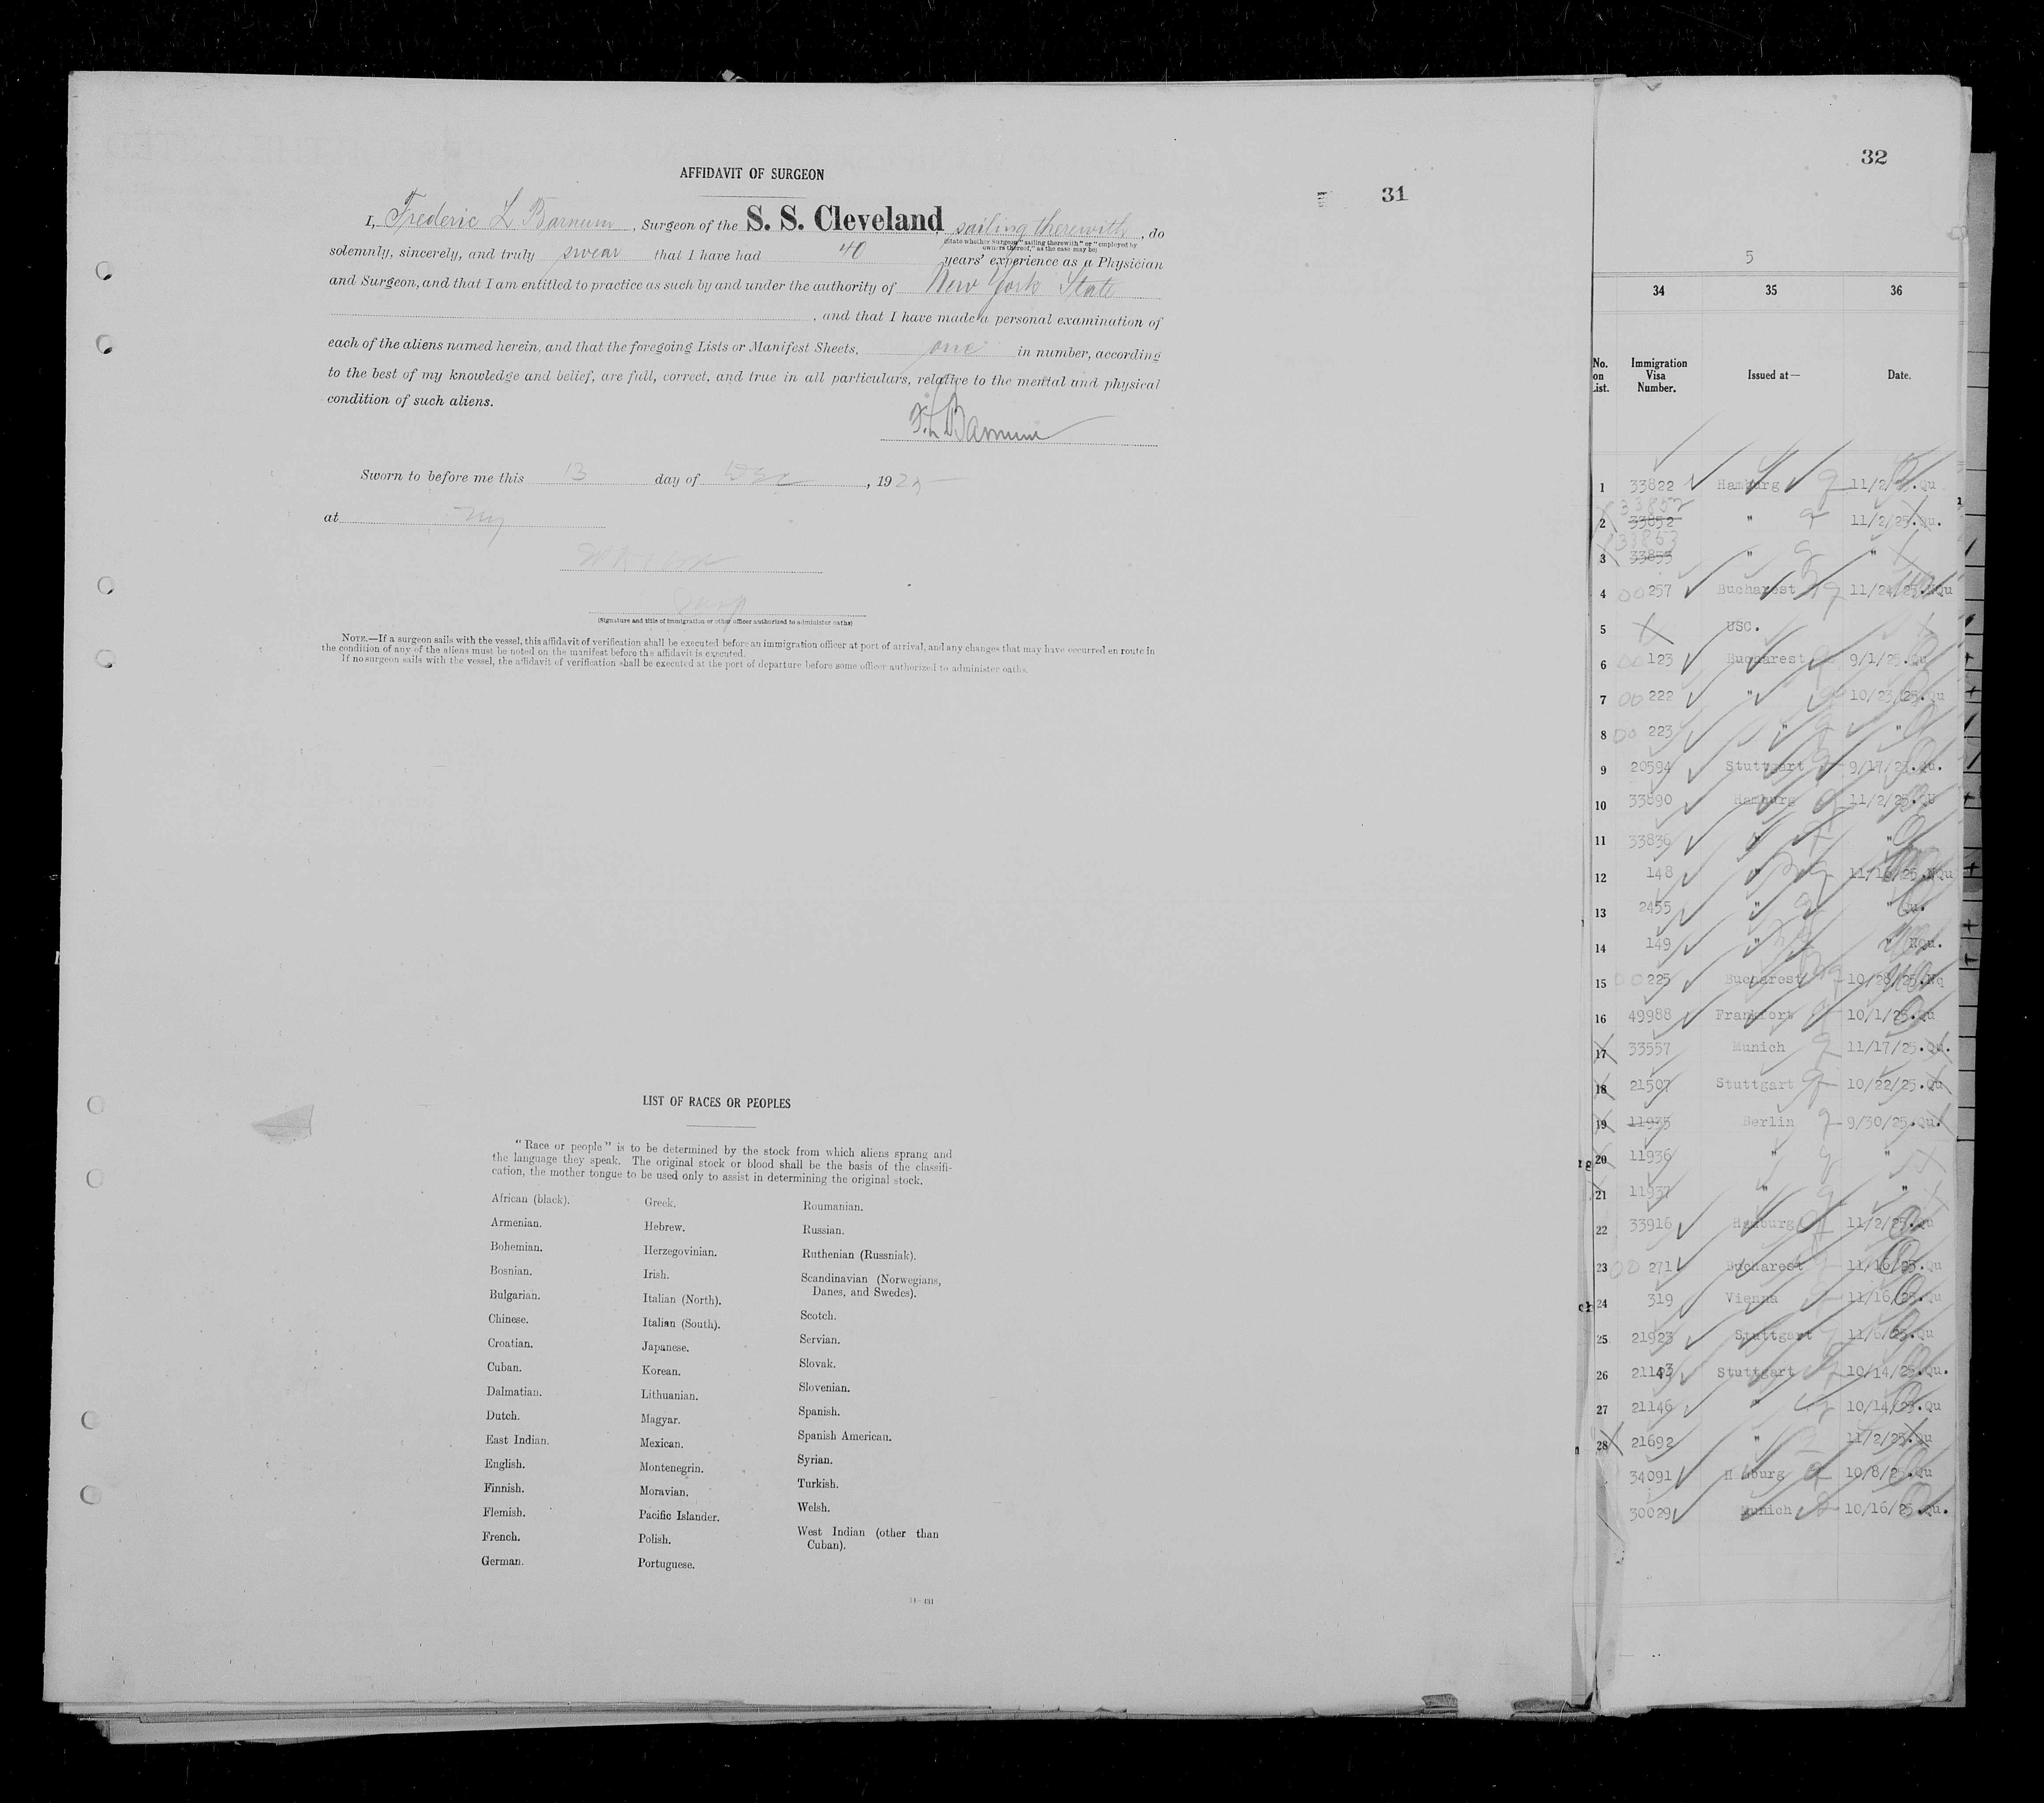 AFFIDAVIT OF SURGEON
31
I, Frederic L Barnum, Surgeon of the S. S. Cleveland, sailing therewith, do
(State whether Surgeon "sailing therewith" or "employed by
owners thereof," as the case may be)
solemnly, sincerely, and truly swear that I have had 40 years' experience as a Physician
and Surgeon, and that I am entitled to practice as such by and under the authority of New York State
, and that I have made a personal examination of
each of the aliens named herein, and that the foregoing Lists or Manifest Sheets, one in number, according
to the best of my knowledge and belief, are full, correct, and true in all particulars, relative to the mental and physical
condition of such aliens.
F. L Barnum
Sworn to before me this 13 day of Dec, 1925
at NY
Insp
(Signature and title of immigration or other officer authorized to administer oaths)
NOTE.—If a surgeon sails with the vessel, this affidavit of verification shall be executed before an immigration officer at port of arrival, and any changes that may have occurred en route in
the condition of any of the aliens must be noted on the manifest before the affidavit is executed.
If no surgeon sails with the vessel, the affidavit of verification shall be executed at the port of departure before some officer authorized to administer oaths.
LIST OF RACES OR PEOPLES
"Race or people" is to be determined by the stock from which aliens sprang and
the language they speak. The original stock or blood shall be the basis of the classifi-
cation, the mother tongue to be used only to assist in determining the original stock.
African (black).
Armenian.
Bohemian.
Bosnian.
Bulgarian.
Chinese.
Croatian.
Cuban.
Dalmatian.
Dutch.
East Indian.
English.
Finnish.
Flemish.
French.
German.
Greek.
Hebrew.
Herzegovinian.
Irish.
Italian (North).
Italian (South).
Japanese.
Korean.
Lithuanian.
Magyar.
Mexican.
Montenegrin.
Moravian.
Pacific Islander.
Polish.
Portuguese.
Roumanian.
Russian.
Ruthenian (Russniak).
Scandinavian (Norwegians,
Danes, and Swedes).
Scotch.
Servian.
Slovak.
Slovenian.
Spanish.
Spanish American.
Syrian.
Turkish.
Welsh.
West Indian (other than
Cuban).
32
5
34 35 36
No. on List. Immigration Visa Number. Issued at— Date.
1 33822 Hamburg q 11/2/25.Qu
33852
2 33852 " q 11/2/25.Qu.
33853
3 33853 " q "
4 00257 Bucharest nq 11/24/25.NQu
5 USC.
6 00123 Bucharest q 9/1/25.Qu
7 00222 " q 10/23/25.Qu
8 00223 " q "
9 20594 Stuttgart q 9/17/25.Qu.
10 33890 Hamburg q 11/2/25.QU
11 33836 " q "
12 148 " nq 11/16/25.NQu
13 2455 " q " Qu.
14 149 " nq " NQu.
15 00225 Bucharest nq 10/28/25.Nq
16 49988 Frankfort q 10/1/25.Qu
17 33557 Munich q 11/17/25.Qu.
18 21507 Stuttgart q 10/22/25.Qu
19 11935 Berlin q 9/30/25.Qu.
20 11936 " q "
21 11937 " q "
22 33916 Hamburg q 11/2/25.Qu
23 00271 Bucharest q 11/16/25.Qu
24 319 Vienna q 11/16/25.Qu
25 21923 Stuttgart q 11/6/25.Qu
26 21143 Stuttgart q 10/14/25.Qu.
27 21146 " q 10/14/25.Qu
28 21692 " 11/2/25.Qu
34091 Hamburg q 10/8/25.Qu
30029 Munich q 10/16/25.Qu.